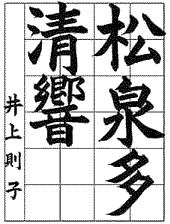 松泉多
清響
井上則子